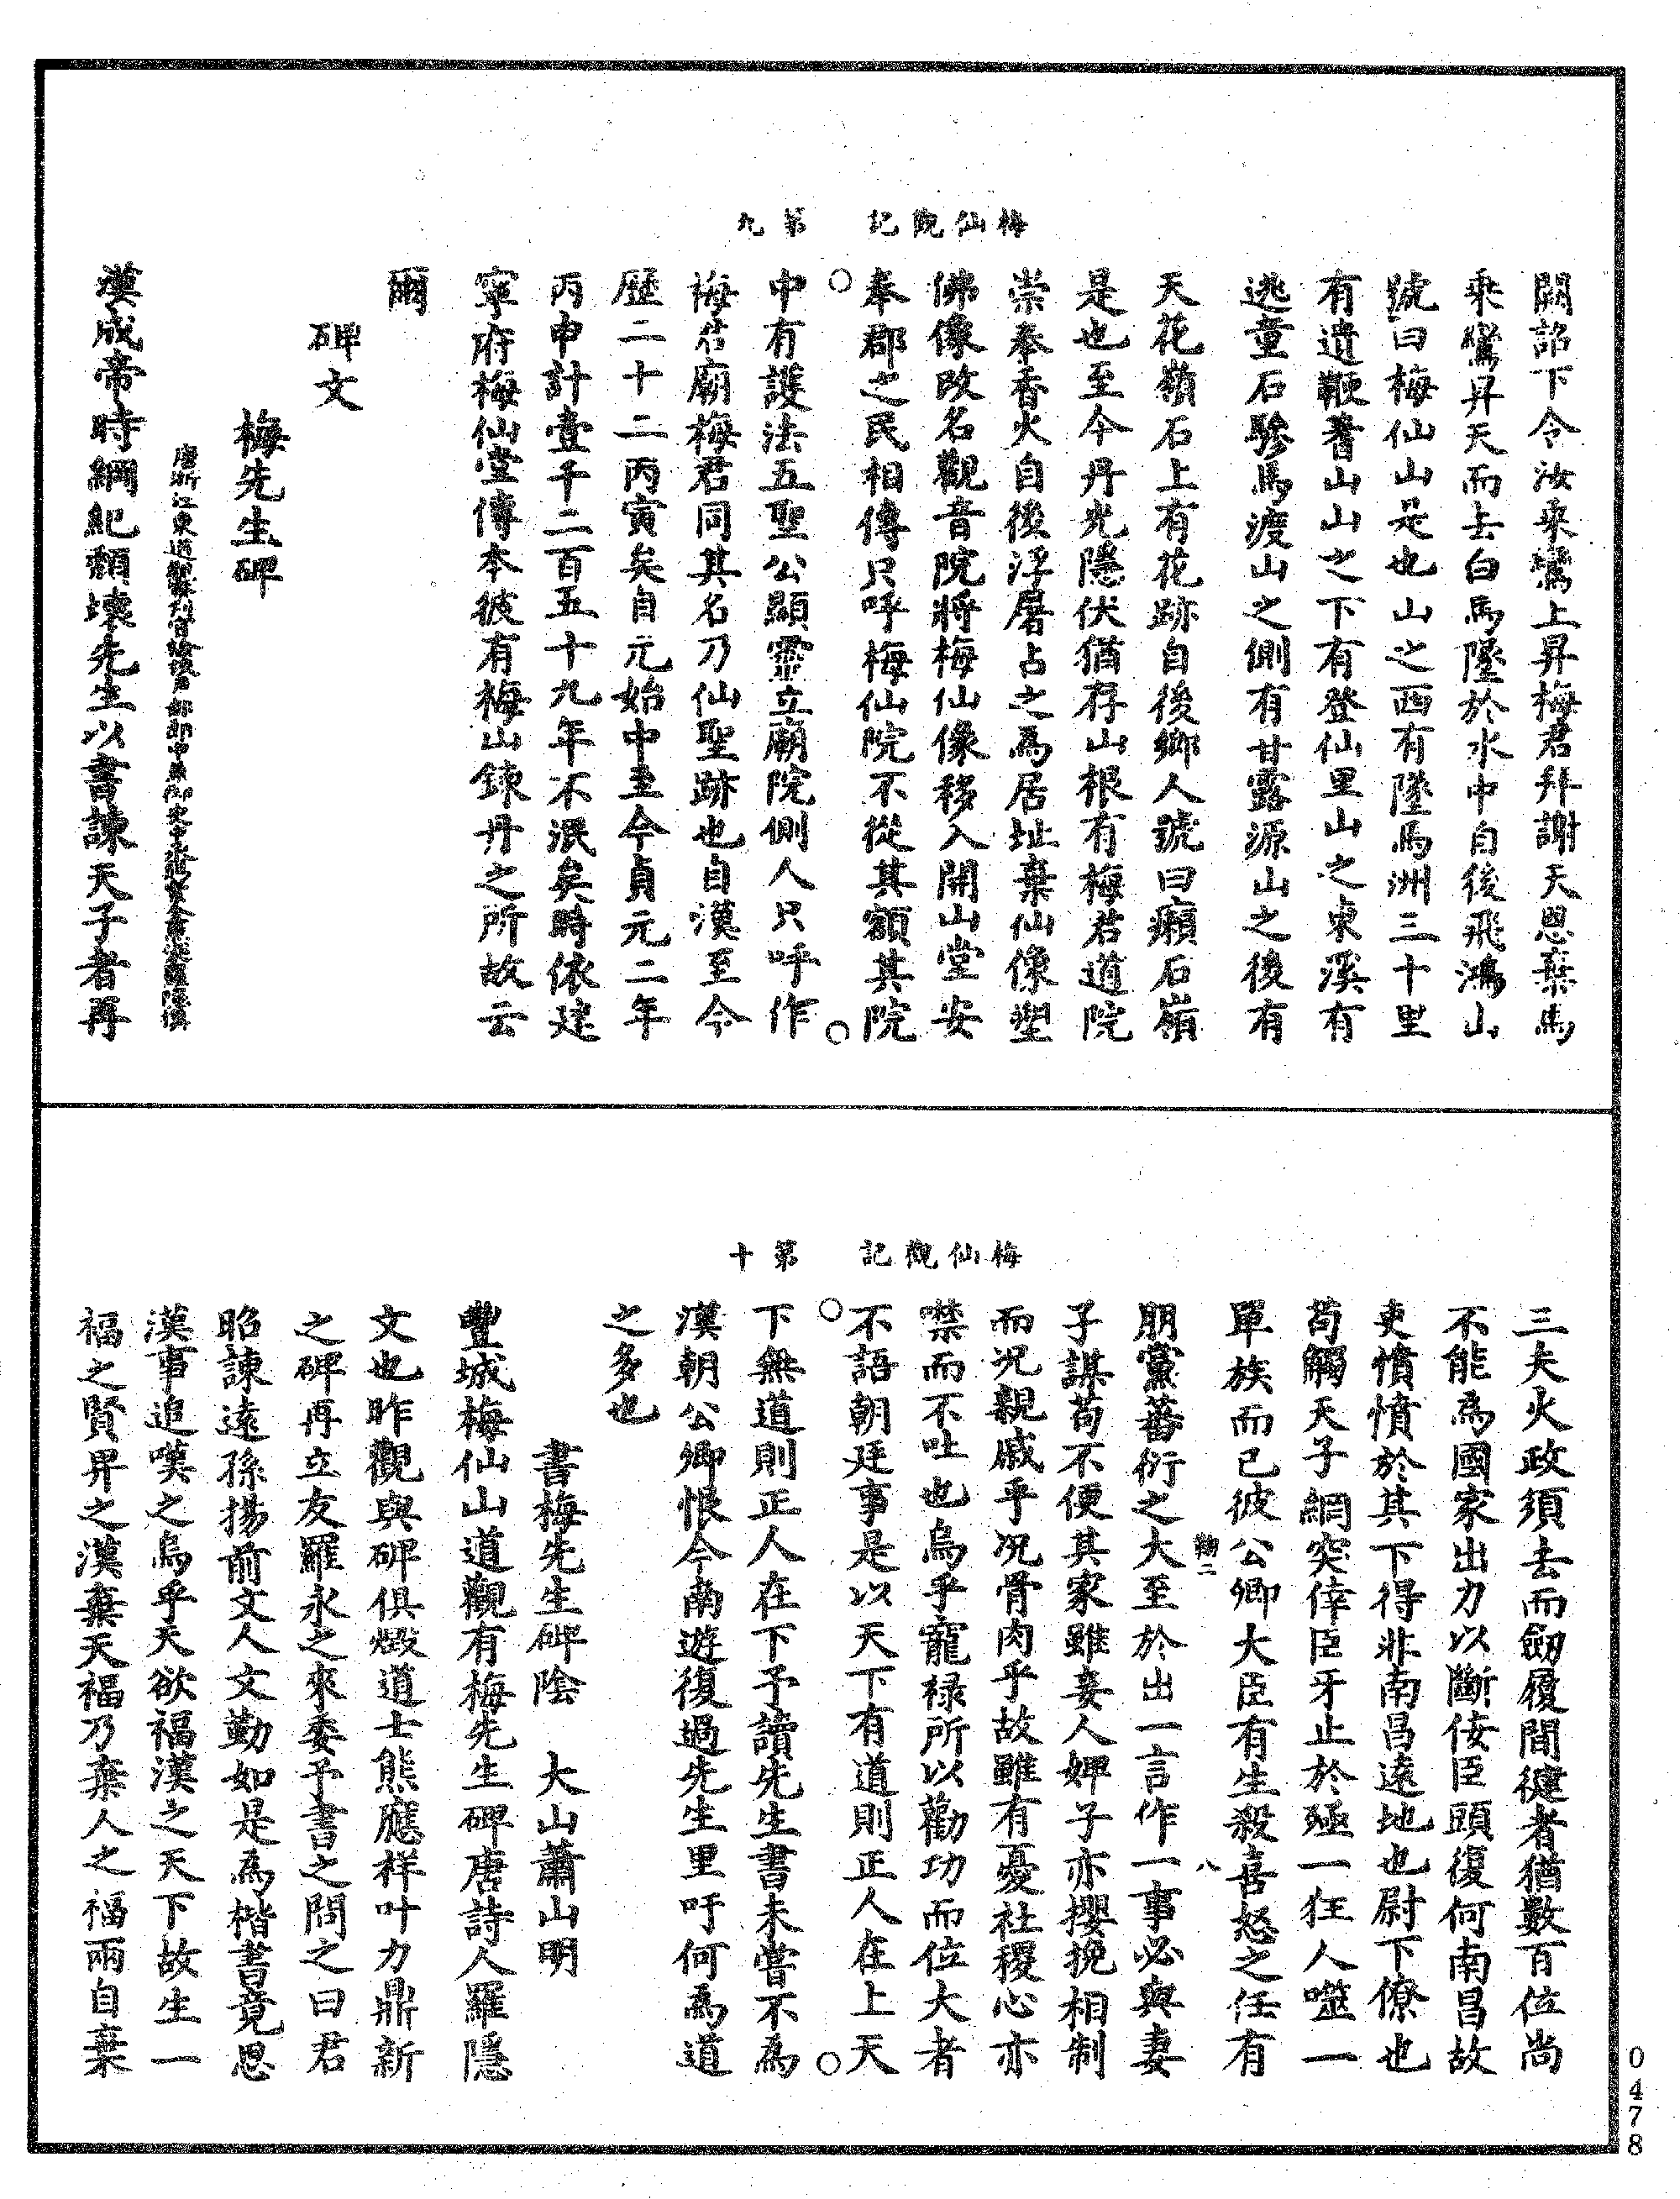 梅仙觀記　第九
闕詔下令汝乘鸞上昇梅君拜謝天恩棄馬
乘鸞昇天而去白馬墜於水中自後飛鴻山
號曰梅仙山是也山之西有墜馬洲三十里
有遺鞭著山山之下有登仙里山之東溪有
逃童石驂馬渡山之側有甘露源山之後有
天花嶺石上有花跡自後鄉人號曰癩石嶺
是也至今丹光隱伏猶存山根有梅君道院
崇奉香火自後浮屠占之爲居址棄仙像塑
佛像改名觀音院將梅仙像移入開山堂安
奉郡之民相傳只呼梅仙院不從其額其院
中有護法五聖公顯靈立廟院側人只呼作
梅君廟梅君同其名乃仙聖跡也自漢至今
歷二十二丙寅矣自元始中至今貞元二年
丙申計壹千二百五十九年不泯矣時依建
寧府梅仙堂傳本彼有梅山鍊丹之所故云
爾
碑文
梅先生碑
漢成帝時綱紀頹壞先生以書諫天子者再
梅仙觀記　第十
三夫火政須去而劒履間健者猶數百位尚
不能爲國家出力以斷佞臣頭復何南昌故
吏憤憤於其下得非南昌遠地也尉下僚也
苟觸天子網突倖臣牙止於殛一狂人噬一
單族而已彼公卿大臣有生殺喜怒之任有
鞠二　八
朋黨蕃衍之大至於出一言作一事必與妻
子謀苟不便其家雖妾人婢子亦攖挽相制
而況親戚乎况骨肉乎故雖有憂社稷心亦
噤而不吐也烏乎寵祿所以勸功而位大者
不語朝廷事是以天下有道則正人在上天
下無道則正人在下予讀先生書未嘗不爲
漢朝公卿恨今南遊復過先生里吁何爲道
之多也
書梅先生碑陰　大山蕭山明
豐城梅仙山道觀有梅先生碑唐詩人羅隱
文也昨觀與碑俱燬道士熊應样叶力鼎新
之碑再立友羅永之來委予書之問之曰君
昭諫遠孫揚前文人文勤如是爲楷書竟思
漢事追嘆之烏乎天欲福漢之天下故生一
福之賢畀之漢棄天福乃棄人之福兩自棄
0478